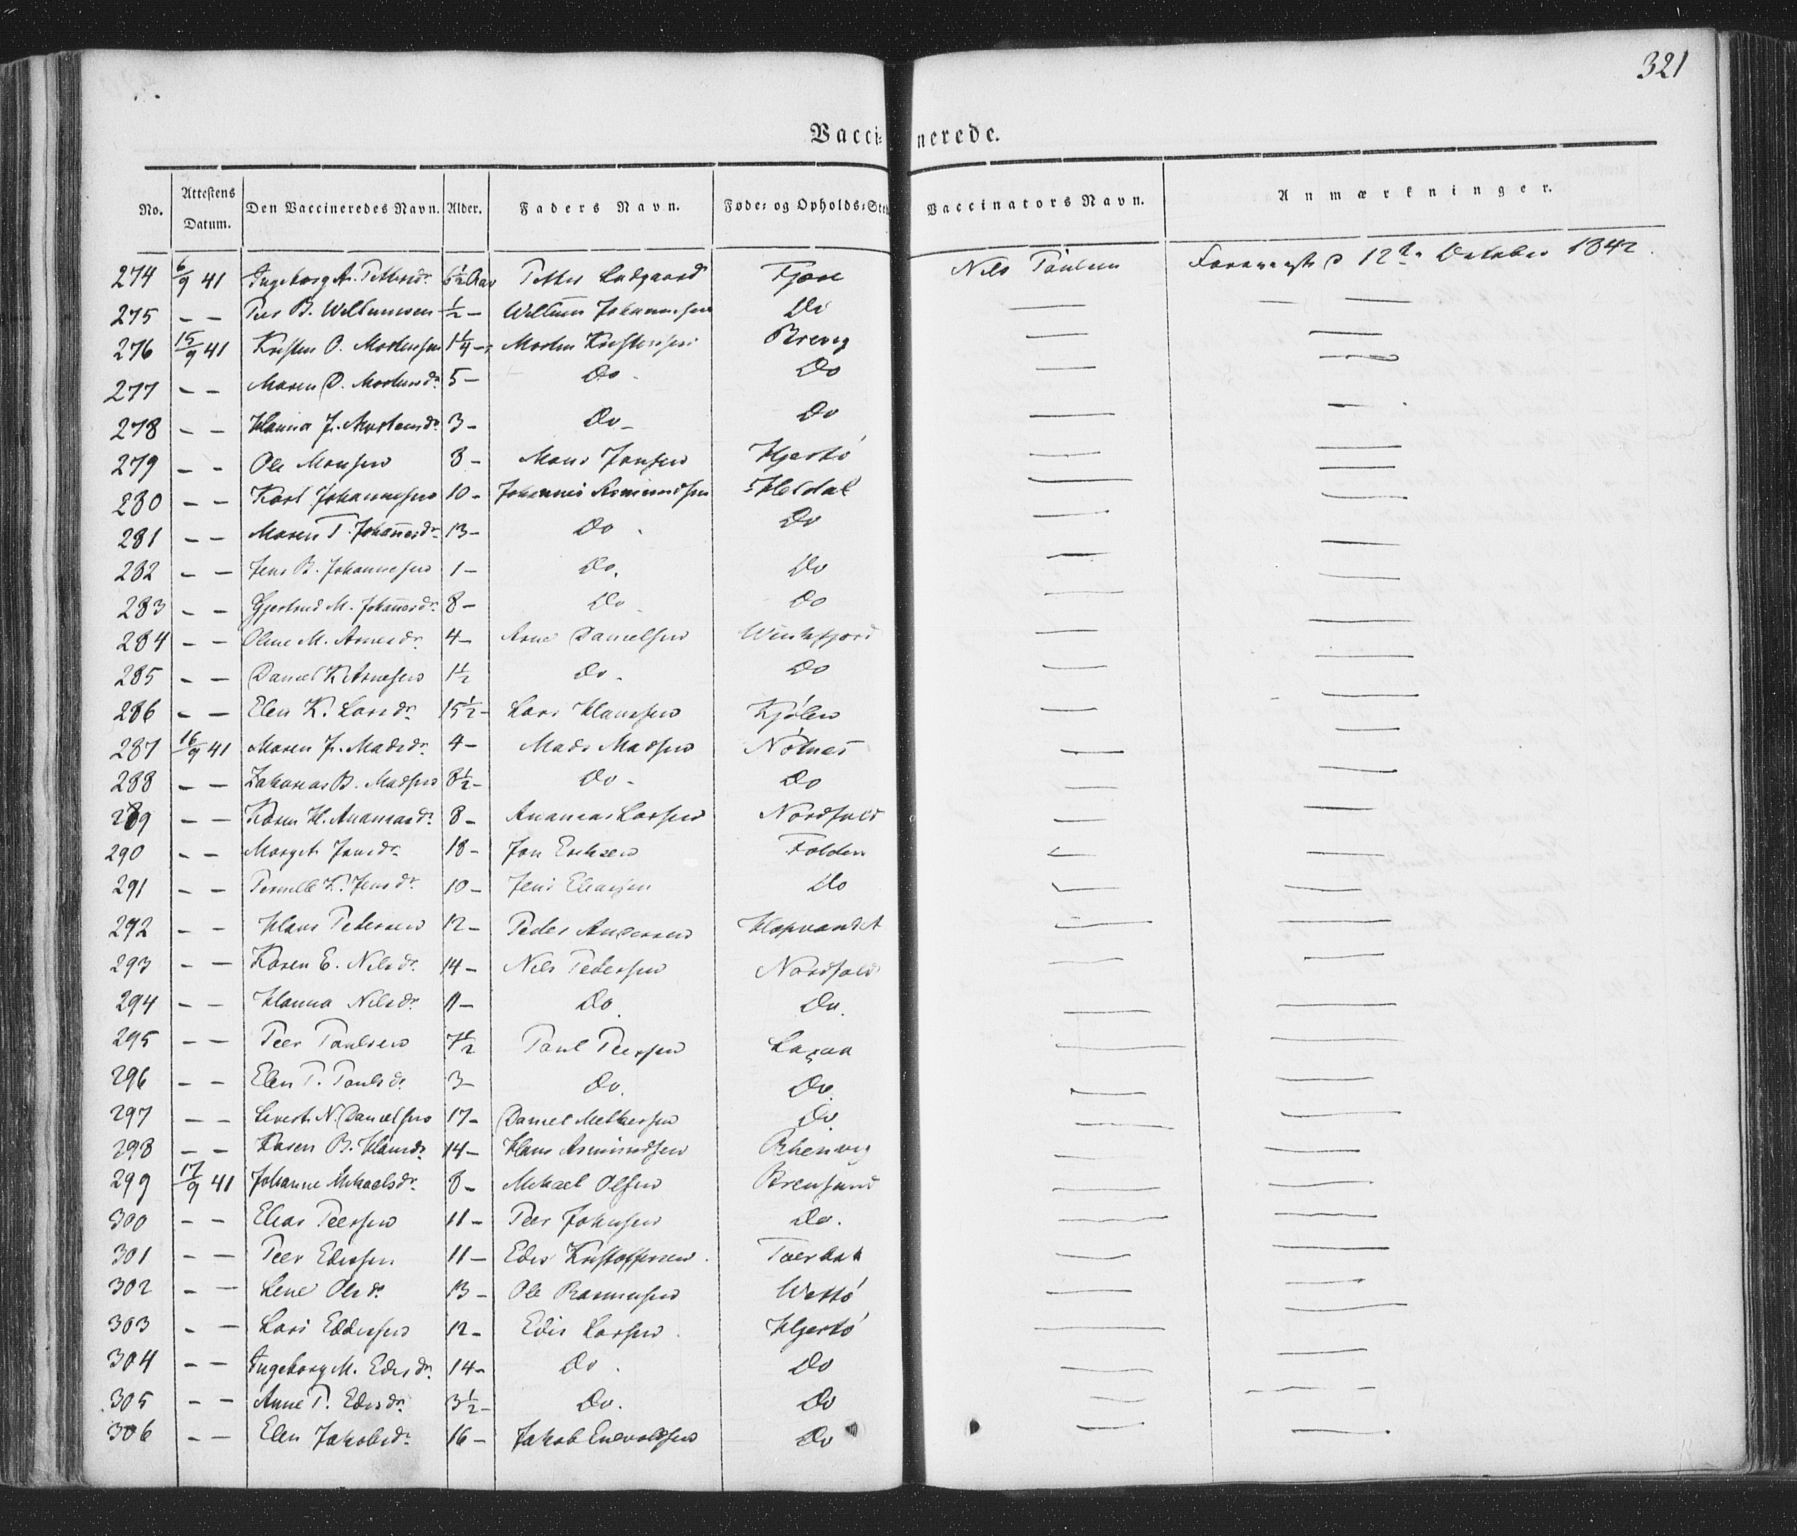 321
Vaccinerede.
No. Attestens Datum. Den Vaccineredes Navn. Alder. Faders Navn. Føde- og Opholds-Sted Vaccinators Navn. Anmærkninger.
274 6/9 41 Ingeborg A. Pettersdr. 6½ Aar Petter Ladgaard Fjære Nils Paulsen 12te October 1842.
275 – – Peer B. Willumsen ½ – Willum Johannesen Do — —
276 15/9 41 Kristen O. Mortensen 1¼ – Morten Kristensen Brevig — —
277 – – Maren D. Mortensdr. 5 – Do Do — —
278 – – Hanna J. Mortensdr. 3 – Do – Do — —
279 – – Ole Monsen 8 – Mons Jonsen Hjertö — —
280 – – Karl Johannesen 10 – Johannes Asmundsen Heldal — —
281 – – Maren T. Johañesdr. 13 – Do Do — —
282 – – Jens B. Johannesen 1 – Do. Do — —
283 – – Gjertrud M. Johañesdr. 8 – Do Do — —
284 – – Oline M. Arnesdr. 4 – Arne Danielsen Winkfjord — —
285 – – Daniel K. Arnesen 1½ Do – Do — —
286 – – Elen K. Larsdr. 15½ – Lars Hansen Kjølen — —
287 16/9 41 Maren J. Madsdr. 4 – Mads Madsen Nötnes — —
288 – – Zakarias B. Madsen 8½ – Do – Do — —
289 – – Karen H. Ananiasdr. 8 – Ananias Larsen Nordfold — —
290 – – Margit Jonsdr. 18 – Jon Eriksen Folden — —
291 – – Pernille K. Jensdr. 10 – Jens Eliassen Do — —
292 – – Hans Pedersen 12 – Peder Andersen Hopvandet — —
293 – – Karen E. Nilsdr. 14 – Nils Pedersen Nordfold — —
294 – – Hanna Nilsdr. 11 – Do. Do. — —
295 – – Peer Paulsen 7½ Paul Peersen — —
296 – – Elen P. Paulsdr. 3 – Do. Do. — —
297 – – Sivert N. Danielsen 17 – Daniel Melkersen Do. — —
298 – – Karen B. Hansdr. 14 – Hans Asmundsen — —
299 17/9 41 Johanne Mikaelsdr. 8 – Mikael Olsen Brensund — —
300 – – Elias Peersen 11 – Peer Johnsen Do. — —
301 – – Peer Edissen 11 – Edis Kristoffersen. — —
302 – – Lene Olsdr. 13 – Ole Rasmusen Wettö — —
303 – – Lars Eddissen 12 – Edis Larsen. Hjertö — —
304 – – Ingeborg M. Edisdr. 14 – Do. Do — —
305 – – Anne P. Edisdr. 3½ – Do. Do — —
306 – – Elen Jakobsdr. 16 – Jakob Enevoldsen Do — —